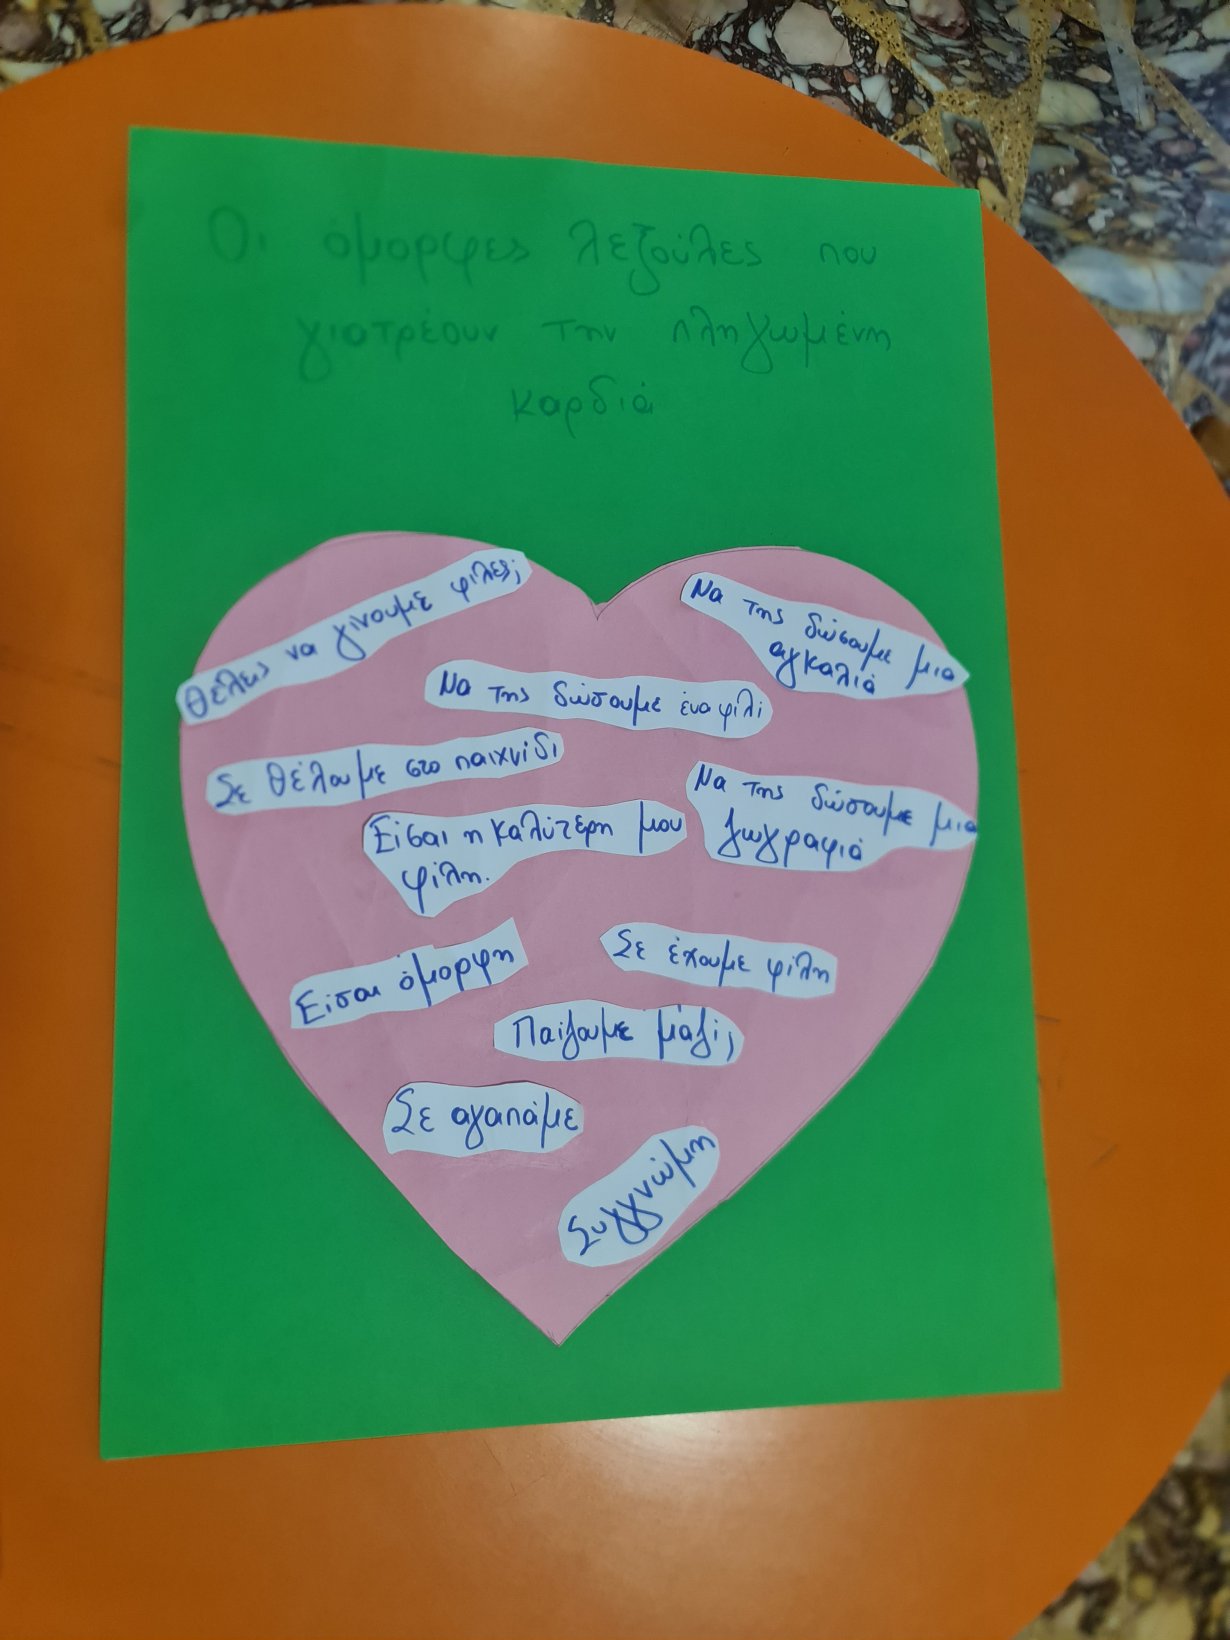 Οι όμορφες λεξούλες που
γιατρέουν την πληγωμένη
καρδιά
Θέλεις να γίνουμε φίλες;
Να της δώσουμε μια
αγκαλιά
Να της δώσουμε ένα φιλί
Σε θέλουμε στο παιχνίδι
Να της δώσουμε μια
ζωγραφιά
Είσαι η καλύτερη μου
φίλη.
Είσαι όμορφη
Σε έχουμε φίλη
Παίζουμε μάζί;
Σε αγαπάμε
Συγγνώμη